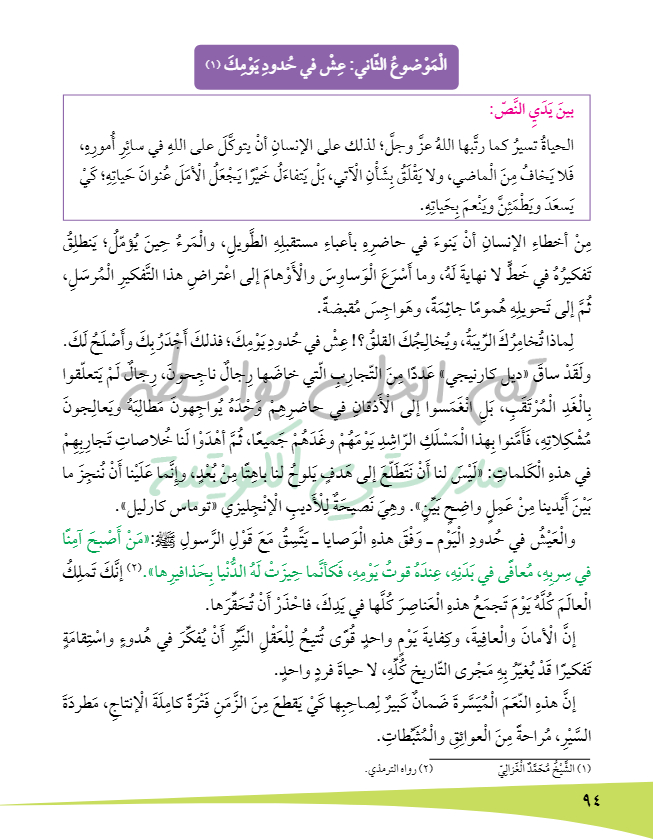 الْمَوْضوعُ الثّاني: عِشْ في حُدودِ يَوْمِكَ (١)
بينَ يَدَيِ النَّصّ:
الحياةُ تسيرُ كما رتَّبها اللهُ عزَّ وجلَّ؛ لذلك على الإنسانِ أنْ يتوكَّلَ على اللهِ في سائِرِ أُمورِهِ،
فَلا يَخافُ مِنَ الْماضي، ولا يَقْلَقُ بِشَأْنِ الْآتي، بَلْ يَتفاءَلُ خَيْرًا يَجْعَلُ الْأمَلَ عُنوانَ حَياتِهِ؛ كَيْ
يَسعَدَ ويَطْمَئِنَّ ويَنْعَمَ بِحَياتِهِ.
مِنْ أخطاءِ الإنسانِ أنْ يَنوءَ في حاضرِهِ بأعباءِ مستقبلِهِ الطَّويلِ، والْمَرءُ حِينَ يُؤمّلُ؛ يَنطلِقُ
تَفكيرُهُ في خَطٍّ لا نهايةَ لَهُ، وما أسْرَعَ الْوَساوِسَ والْأوْهامَ إلى اعْتراضِ هذا التَّفكيرِ الْمُرسَلِ،
ثُمَّ إلى تَحويلِهِ هُمومًا جاثِمَةً، وهَواجِسَ مُقبضةً.
لِماذا تُخامِرُكَ الرّيبَةُ، ويُخالِجُكَ القلقُ؟! عِشْ في حُدودِ يَوْمِكَ؛ فذلكَ أجْدَرُ بِكَ وأصْلَحُ لَكَ.
ولَقَدْ ساقَ «ديل كارنيجي» عَددًا مِنَ التَّجاربِ الَّتي خاضَها رِجالٌ ناجِحونَ، رِجالٌ لَمْ يَتعلّقوا
بِالْغَدِ الْمُرْتَقَبِ، بَلِ انْغَمَسوا إلى الْأذقانِ في حاضرِهِمْ وَحْدَهُ يُواجِهونَ مَطالِبَهُ ويَعالِجونَ
مُشْكِلاتِهِ، فَأمَّنوا بِهذا الْمَسْلَكِ الرّاشِدِ يَوْمَهُمْ وغَدَهُمْ جَميعًا، ثُمَّ أهْدَوْا لَنا خُلاصاتِ تَجارِبِهِمْ
في هذِهِ الْكَلماتِ: «لَيْسَ لَنا أنْ نَتَطَلَّعَ إلى هَدَفٍ يَلوحُ لَنا باهِتًا مِنْ بُعْدٍ، وإنَّما عَلَيْنا أنْ نُنجِزَ ما
بَيْنَ أيْدينا مِنْ عَمِلٍ واضِحٍ بَيِّنٍ». وهِيَ نَصيحَةٌ لِلْأديبِ الْإنْجليزي «توماس كارليل».
والْعَيْشُ في حُدودِ الْيَوْمِ ــ وَفْقَ هذهِ الْوَصايا ــ يَتَّسِقُ مَعَ قَوْلِ الرَّسولِ ﷺ:«مَنْ أَصْبَحَ آمِنًا
في سِربِهِ، مُعافًى في بَدَنِهِ، عِندَهُ قوتُ يَوْمِهِ، فَكَأنَّما حِيزَتْ لَهُ الدُّنْيا بِحَذافيرِها».(٢) إنَّكَ تَملِكُ
الْعالَمَ كُلَّهُ يَوْمَ تَجمَعُ هذهِ الْعَناصِرَ كُلَّها في يَدِكَ، فاحْذَرْ أنْ تُحَقِّرَها.
إنَّ الْأمانَ والْعافِيةَ، وكِفايةَ يَوْمٍ واحدٍ قُوًى تُتيحُ لِلْعَقْلِ النَّيِّرِ أنْ يُفكِّرَ في هُدوءٍ واسْتِقامَةٍ
تَفكيرًا قَدْ يُغيِّرُ بِهِ مَجْرى التّاريخِ كُلِّهِ، لا حياةَ فردٍ واحدٍ.
إنَّ هذهِ النِّعَمَ الْمُيَسَّرةَ ضَمانٌ كَبيرٌ لِصاحِبِها كَيْ يَقطعَ مِنَ الزَّمَنِ فَتْرَةً كامِلَةَ الْإنتاجِ، مَطردَةَ
السَّيْرِ، مُراحةً مِنَ الْعوائِقِ والْمُثبِّطاتِ.
(١) الشَّيْخُ مُحَمَّدٌ الْغَزاليّ (٢) رواه الترمذي.
٩٤